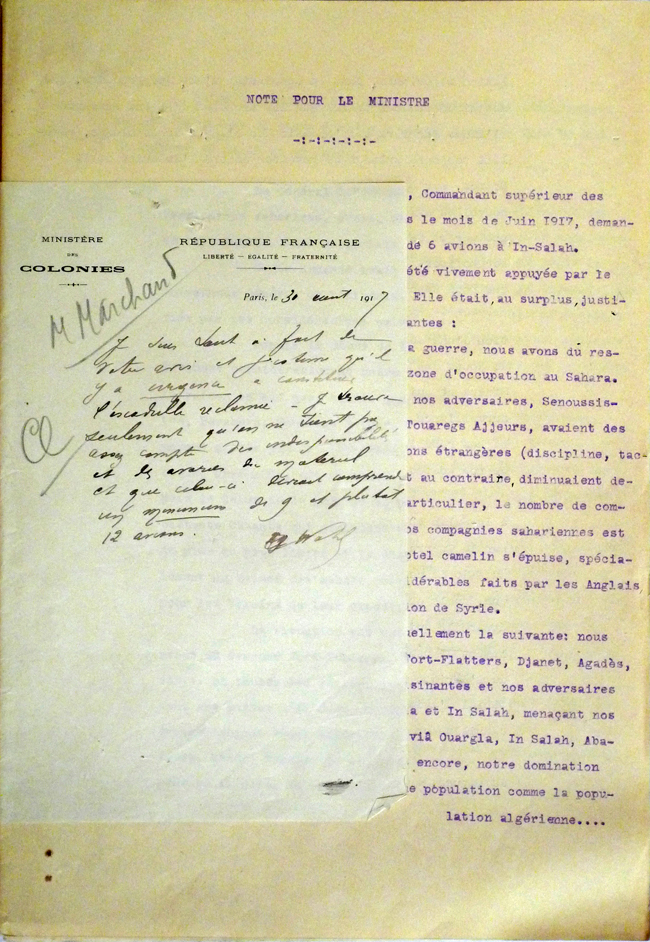 NOTE POUR LE MINISTRE
-:-:-:-:-:-
, Commandant supérieur des
s le mois de Juin 1917, deman-
de 6 avions à In-Salah.
été vivement appuyée par le
Elle était, au surplus, justi-
antes :
a guerre, nous avons dû res-
zone d'occupation au Sahara.
nos adversaires, Senoussis-
Touaregs Ajjeurs, avaient des
ons étrangères (discipline, tac-
t au contraire, diminuaient de-
articulier, le nombre de com-
os compagnies sahariennes est
ptel camelin s'épuise, spécia-
dérables faits par les Anglais
ion de Syrie.
uellement la suivante: nous
Fort-Flatters, Djanet, Agadès,
sinantes et nos adversaires
a et In Salah, menaçant nos
viâ Ouargla, In Salah, Aba-
encore, notre domination
e population comme la popu-
lation algérienne....
MINISTÈRE
DES
COLONIES
RÉPUBLIQUE FRANÇAISE
LIBERTÉ — EGALITÉ — FRATERNITÉ
Paris, le 30 aout 1917
M Marchand
Je suis tout à fait de
votre avis et j'estime qu'il
y a urgence à constituer
l'escadrille réclamée - Je trouve
seulement qu'on ne tient pas
assez compte des indisponibilités
et des avaries de matériel
et que celle-ci devrait comprendre
un minimum de 9 et plutôt
12 avions.